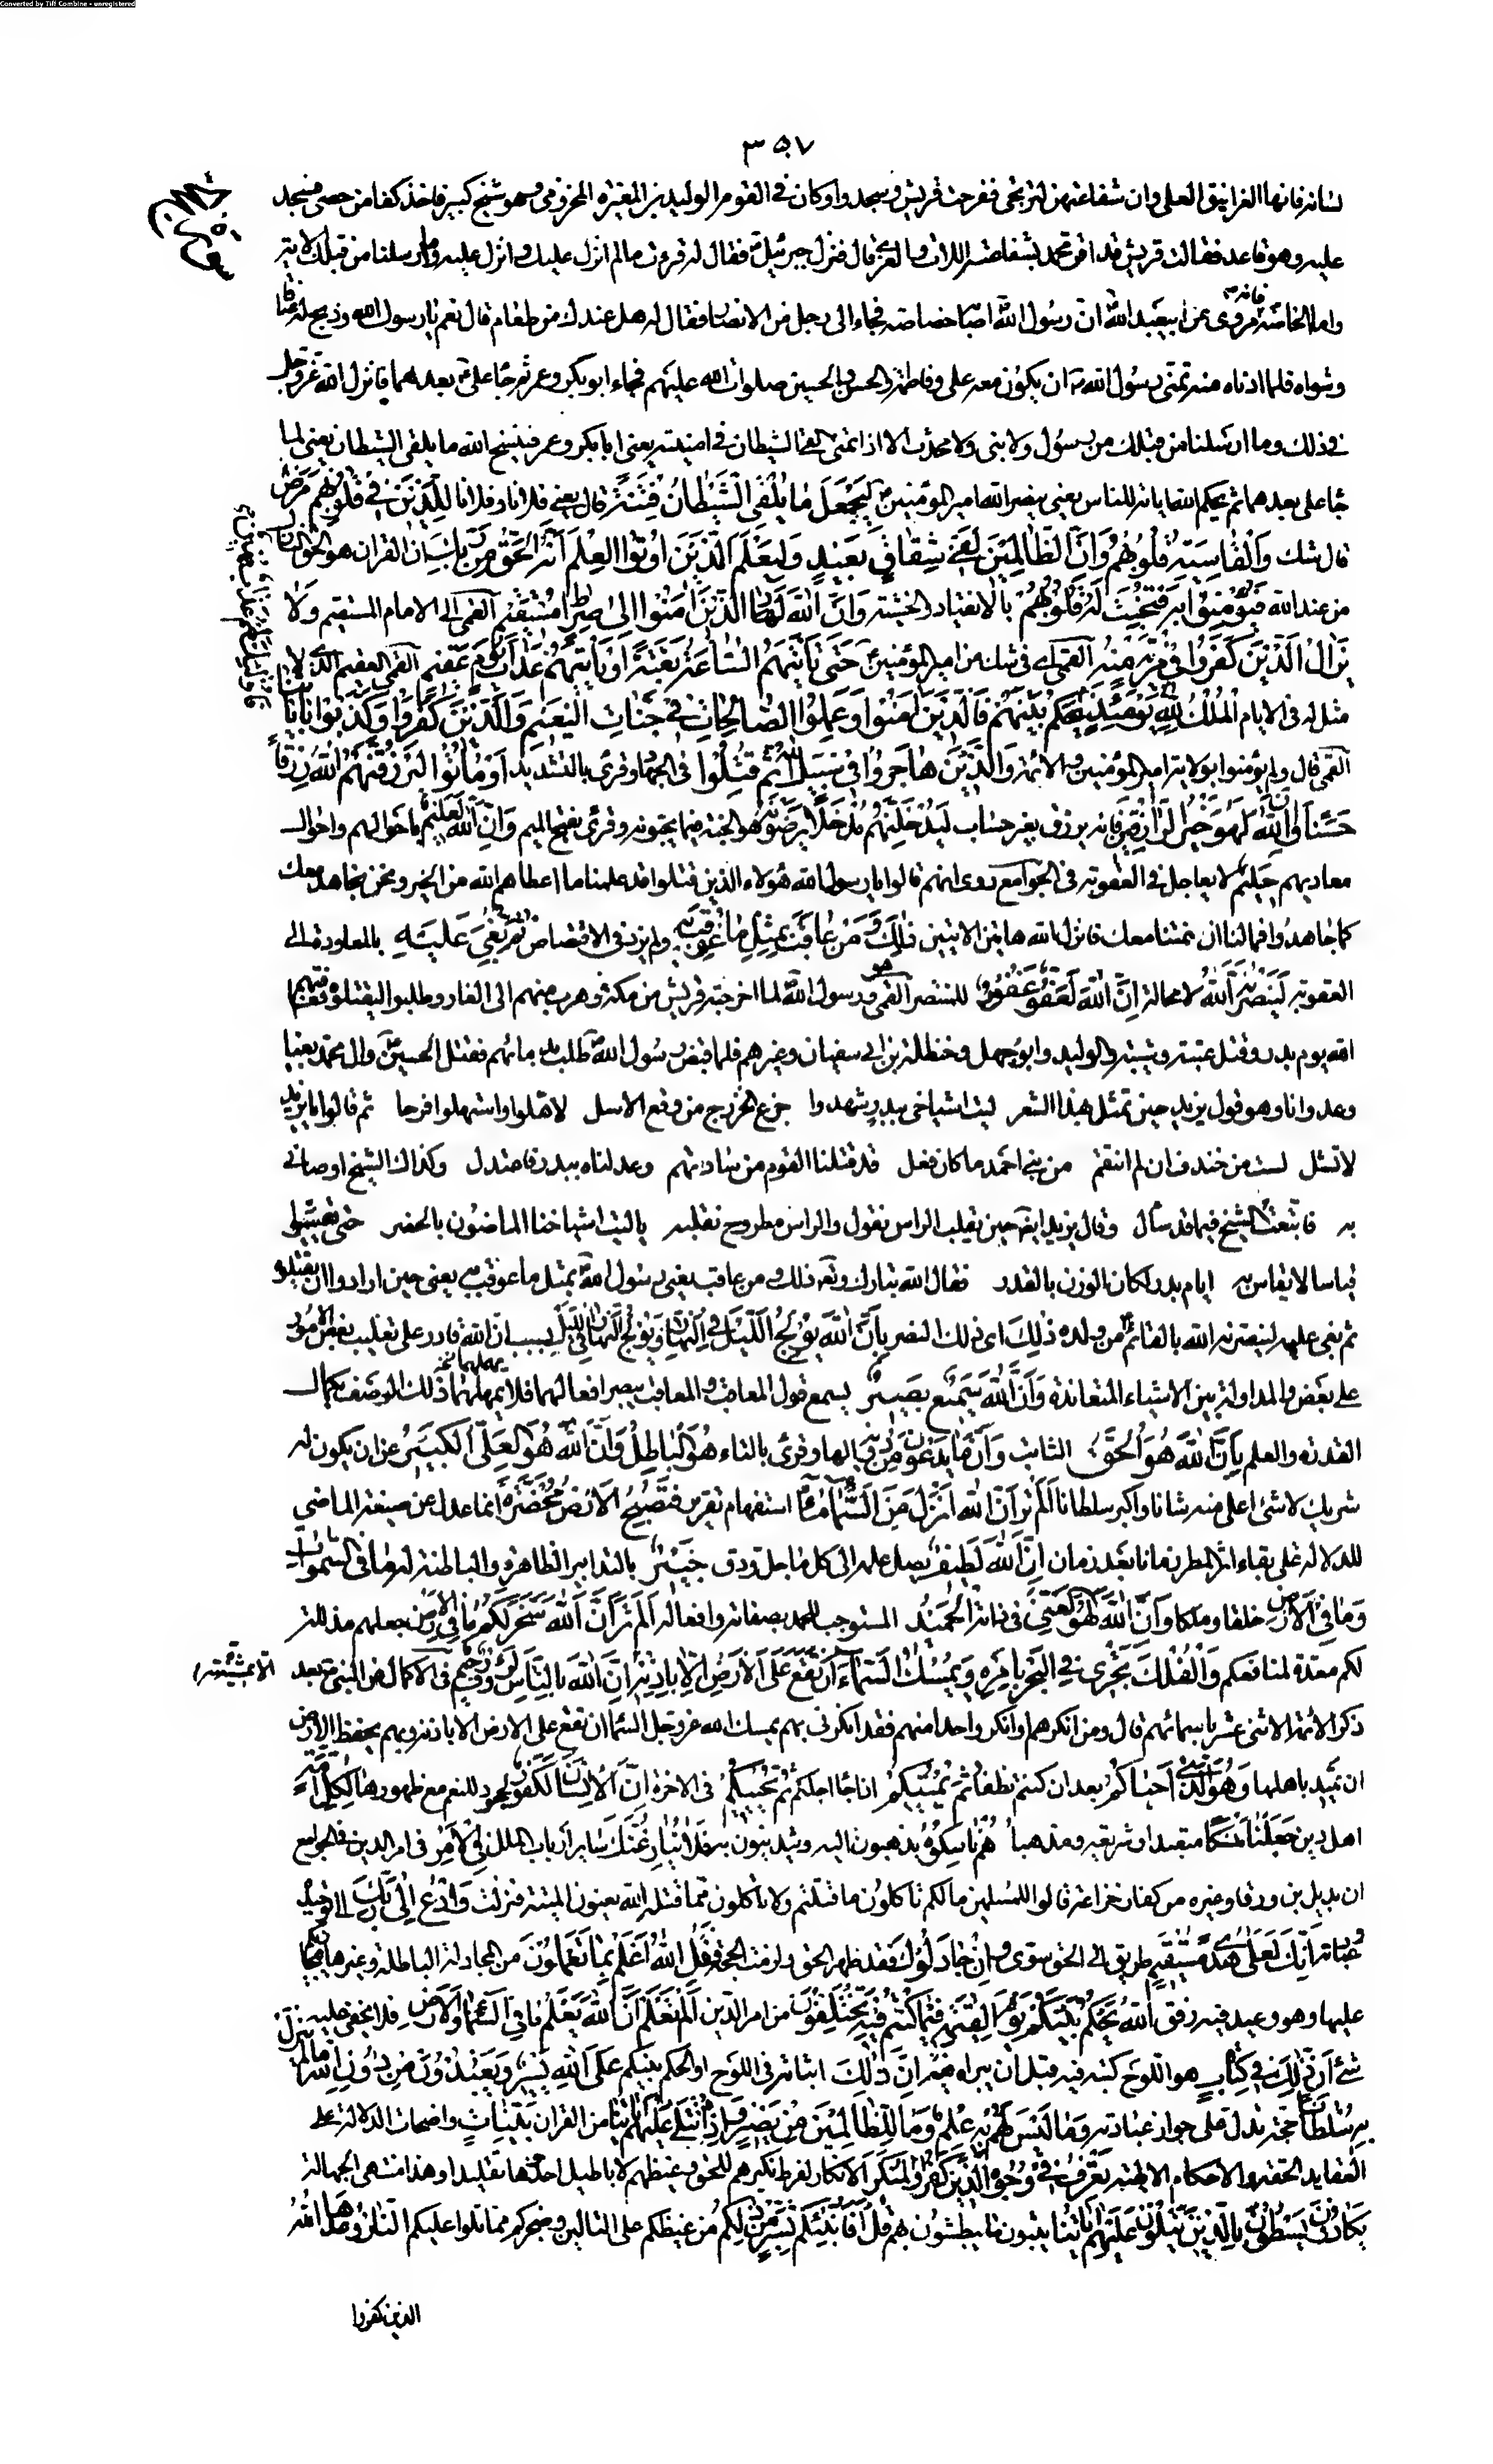 Converted by Tiff Combine - unregistered
٣٥٧
لسانه فانها الغرانيق العلى وان شفاعتهن لترتجى ففرحت قريش وسجدوا وكان في القوم الوليد بن المغيرة المخزومي وهو شيخ كبير فاخذ كفا من حصى فسجد
عليه وهو قاعد فقالت قريش قد اقر محمد بشفاعة اللات والعزى قال فنزل جبرئيل فقال له قرءت ما لم انزل عليك وانزل عليه وما ارسلنا من قبلك الاية
واما الخاصة فانه روى عن ابيعبد الله ان رسول الله اصابه خصاصة فجاء الى رجل من الانصار فقال له هل عندك من طعام قال نعم يا رسول الله وذبح له عناقا
وشواه فلما ادناه منه تمنى رسول الله ان يكون معه على وفاطمة والحسن والحسين صلوات الله عليهم فجاء ابو بكر وعمر ثم جاء على بعدهما فانزل الله عز وجل
في ذلك وما ارسلنا من قبلك من رسول ولا نبى ولا محدث الا اذا تمنى القى الشيطان في امنيته يعنى ابا بكر وعمر فينسخ الله ما يلقى الشيطان يعنى لما
جاء على بعدهما ثم يحكم الله اياته للناس يعنى ينصر الله امير المؤمنين لِيَجْعَلَ مَا يُلْقِى الشَّيْطَانُ فِتْنَةً قال يعنى فلانا وفلانا لِلَّذِينَ فِي قُلُوبِهِمْ مَرَضٌ
قال شك وَالْقَاسِيَةِ قُلُوبُهُمْ وَاِنَّ الظَّالِمِينَ لَفِي شِقَاقٍ بَعِيدٍ وَلِيَعْلَمَ الَّذِينَ اُوتُوا الْعِلْمَ اَنَّهُ الْحَقُّ مِنْ رَبِّكَ ان القران هو الحق النازل
من عند الله فَيُؤْمِنُوا بِهِ فَتُخْبِتَ لَهُ قُلُوبُهُمْ بالانقياد والخشية وَاِنَّ اللهَ لَهَادِ الَّذِينَ امَنُوا اِلَى صِرَاطٍ مُسْتَقِيمٍ القمى الى الامام المستقيم وَلَا
يَزَالُ الَّذِينَ كَفَرُوا فِي مِرْيَةٍ مِنْهُ القمى اى فى شك من امير المؤمنين حَتَّى تَاْتِيَهُمُ السَّاعَةُ بَغْتَةً اَوْ يَاْتِيَهُمْ عَذَابُ يَوْمٍ عَقِيمٍ القمى العقيم الذى لا
مثل له فى الايام الْمُلْكُ يَوْمَئِذٍ لِلَّهِ يَحْكُمُ بَيْنَهُمْ فَالَّذِينَ امَنُوا وَعَمِلُوا الصَّالِحَاتِ فِي جَنَّاتِ النَّعِيمِ وَالَّذِينَ كَفَرُوا وَكَذَّبُوا بِايَاتِنَا
القمى قال ولم يؤمنوا بولاية امير المؤمنين والائمة وَالَّذِينَ هَاجَرُوا فِي سَبِيلِ اللهِ ثُمَّ قُتِلُوا فى الجهاد وقرئ بالتشديد اَوْ مَاتُوا لَيَرْزُقَنَّهُمُ اللهُ رِزْقًا
حَسَنًا وَاِنَّ اللهَ لَهُوَ خَيْرُ الرَّازِقِينَ فانه يرزق بغير حساب لَيُدْخِلَنَّهُمْ مُدْخَلًا يَرْضَوْنَهُ هو الجنة فيها ما يحبونه وقرئ بفتح الميم وَاِنَّ اللهَ لَعَلِيمٌ باحوالهم واحوال
معاديهم حَلِيمٌ لا يعاجل فى العقوبة فى الجوامع روى انهم قالوا يا رسول الله هؤلاء الذين قتلوا قد علمنا ما اعطاهم الله من الخير ونحن نجاهد معك
كما جاهدوا فما لنا ان متنا معك فانزل الله هاتين الايتين ذَلِكَ وَمَنْ عَاقَبَ بِمِثْلِ مَا عُوقِبَ بِهِ ولم يزد فى الاقتصاص ثُمَّ بُغِيَ عَلَيْهِ بالمعاودة الى
العقوبة لَيَنْصُرَنَّهُ اللهُ لا محالة اِنَّ اللهَ لَعَفُوٌّ غَفُورٌ للمنتصر القمى هو رسول الله لما اخرجته قريش من مكة وهرب منهم الى الغار وطلبوا ليقتلوه فعاقبهم
الله يوم بدر وقتل عتبة وشيبة والوليد وابو جهل وحنظلة بن ابى سفيان وغيرهم فلما قبض رسول الله طلب بدمائهم فقتل الحسين وال محمد بغيا
وعدوانا وهو قول يزيد حين تمثل بهذا الشعر ليت اشياخى ببدر شهدوا جزع الخزرج من وقع الاسل لاهلوا واستهلوا فرحا ثم قالوا يا يزيد
لا تشل لست من خندف ان لم انتقم من بنى احمد ما كان فعل قد قتلنا القوم من ساداتهم وعدلناه ببدر فاعتدل وكذاك الشيخ اوصانى
به فاتبعت الشيخ فيما قد سأل وقال يزيد ايضا حين يقلب الراس نقول والراس مطروح نقلبه يا ليت اشياخنا الماضون بالحضر حتى يقيسوا
قياسا لا يقاس به ايام بدر لكان الوزن بالقدر فقال الله تبارك وتعالى ذلك ومن عاقب يعنى رسول الله بمثل ما عوقب به يعنى حين ارادوا ان يقتلوه
ثم بغى عليه لينصرنه الله بالقائم من ولده ذَلِكَ اى ذلك النصر بِاَنَّ اللهَ يُولِجُ اللَّيْلَ فِي النَّهَارِ وَيُولِجُ النَّهَارَ فِي اللَّيْلِ بسبب ان الله قادر على تغليب بعض الامور
على بعض والمداولة بين الاشياء المتعاندة وَاَنَّ اللهَ سَمِيعٌ بَصِيرٌ يسمع قول المعاقب والمعاقب يبصر افعالهما فلا يمهلهما ذَلِكَ الوصف بكمال
القدرة والعلم بِاَنَّ اللهَ هُوَ الْحَقُّ الثابت وَاَنَّ مَا يَدْعُونَ مِنْ دُونِهِ الها وقرئ بالتاء هُوَ الْبَاطِلُ وَاَنَّ اللهَ هُوَ الْعَلِيُّ الْكَبِيرُ عن ان يكون له
شريك لا شئ اعلى منه شانا واكبر سلطانا اَلَمْ تَرَ اَنَّ اللهَ اَنْزَلَ مِنَ السَّمَاءِ مَاءً استفهام تقرير فَتُصْبِحُ الْاَرْضُ مُخْضَرَّةً انما عدل عن صيغة الماضى
للدلالة على بقاء اثر المطر زمانا بعد زمان اِنَّ اللهَ لَطِيفٌ يصل علمه الى كل ما جل ودق خَبِيرٌ بالتدابير الظاهرة والباطنة لَهُ مَا فِي السَّمَوَاتِ
وَمَا فِي الْاَرْضِ خلقا وملكا وَاِنَّ اللهَ لَهُوَ الْغَنِيُّ فى ذاته الْحَمِيدُ المستوجب للحمد بصفاته وافعاله اَلَمْ تَرَ اَنَّ اللهَ سَخَّرَ لَكُمْ مَا فِي الْاَرْضِ جعلها مذللة
لكم معدة لمنافعكم وَالْفُلْكَ تَجْرِى فِي الْبَحْرِ بِاَمْرِهِ وَيُمْسِكُ السَّمَاءَ اَنْ تَقَعَ عَلَى الْاَرْضِ اِلَّا بِاِذْنِهِ اِنَّ اللهَ بِالنَّاسِ لَرَؤُفٌ رَحِيمٌ فى الاكمال عن النبى بعد
الا بمشيته
ذكر الائمة الاثنى عشر باسمائهم قال ومن انكرهم او انكر واحدا منهم فقد انكرنى بهم يمسك الله عز وجل السماء ان تقع على الارض الا باذنه وبهم يحفظ الارض
ان تميد باهلها وَهُوَ الَّذِى اَحْيَاكُمْ بعد ان كنتم نطفا ثُمَّ يُمِيتُكُمْ اذا جاء اجلكم ثُمَّ يُحْيِيكُمْ فى الاخرة اِنَّ الْاِنْسَانَ لَكَفُورٌ لجحود للنعم مع ظهورها لِكُلِّ اُمَّةٍ
اهل دين جَعَلْنَا مَنْسَكًا متعبدا وشريعة ومذهبا هُمْ نَاسِكُوهُ يذهبون اليه ويدينون به فَلَا يُنَازِعُنَّكَ سائر ارباب الملل فِي الْاَمْرِ فى امر الدين فى الجوامع
ان بديل بن ورقا وغيره من كفار خزاعة قالوا للمسلمين ما لكم تاكلون ما قتلتم ولا تاكلون مما قتله الله يعنون الميتة فنزلت وَادْعُ اِلَى رَبِّكَ الى توحيده
وعبادته اِنَّكَ لَعَلَى هُدًى مُسْتَقِيمٍ طريق الى الحق سوى وَاِنْ جَادَلُوكَ فقد ظهر الحق ولزمت الحجة فَقُلِ اللهُ اَعْلَمُ بِمَا تَعْمَلُونَ من المجادلة الباطلة وغيرها فيجازيكم
عليها وهو وعيد فيه رفق اَللهُ يَحْكُمُ بَيْنَكُمْ يَوْمَ الْقِيَمَةِ فِيمَا كُنْتُمْ فِيهِ تَخْتَلِفُونَ من امر الدين اَلَمْ تَعْلَمْ اَنَّ اللهَ يَعْلَمُ مَا فِي السَّمَاءِ وَالْاَرْضِ فلا يخفى عليه
شئ اِنَّ ذَلِكَ فِي كِتَابٍ هو اللوح كتبه فيه قبل ان يبراه اِنَّ ذَلِكَ اثباته فى اللوح او الحكم بينكم عَلَى اللهِ يَسِيرٌ وَيَعْبُدُونَ مِنْ دُونِ اللهِ مَا لَمْ يُنَزِّلْ
بِهِ سُلْطَانًا حجة تدل على جواز عبادته وَمَا لَيْسَ لَهُمْ بِهِ عِلْمٌ وَمَا لِلظَّالِمِينَ مِنْ نَصِيرٍ وَاِذَا تُتْلَى عَلَيْهِمْ ايَاتُنَا من القران بَيِّنَاتٍ واضحات الدلالة على
العقايد الحقة والاحكام الالهية تَعْرِفُ فِي وُجُوهِ الَّذِينَ كَفَرُوا الْمُنْكَرَ الانكار لفرط نكيرهم للحق وغيظهم لاباطيل اخذوها تقليدا وهذا منتهى الجهالة
يَكَادُونَ يَسْطُونَ بِالَّذِينَ يَتْلُونَ عَلَيْهِمْ ايَاتِنَا يثبون ويبطشون بهم قُلْ اَفَاُنَبِّئُكُمْ بِشَرٍّ مِنْ ذَلِكُمْ من غيظكم على التالين وضجركم مما تلوا عليكم اَلنَّارُ وَعَدَهَا اللهُ
الذين كفروا